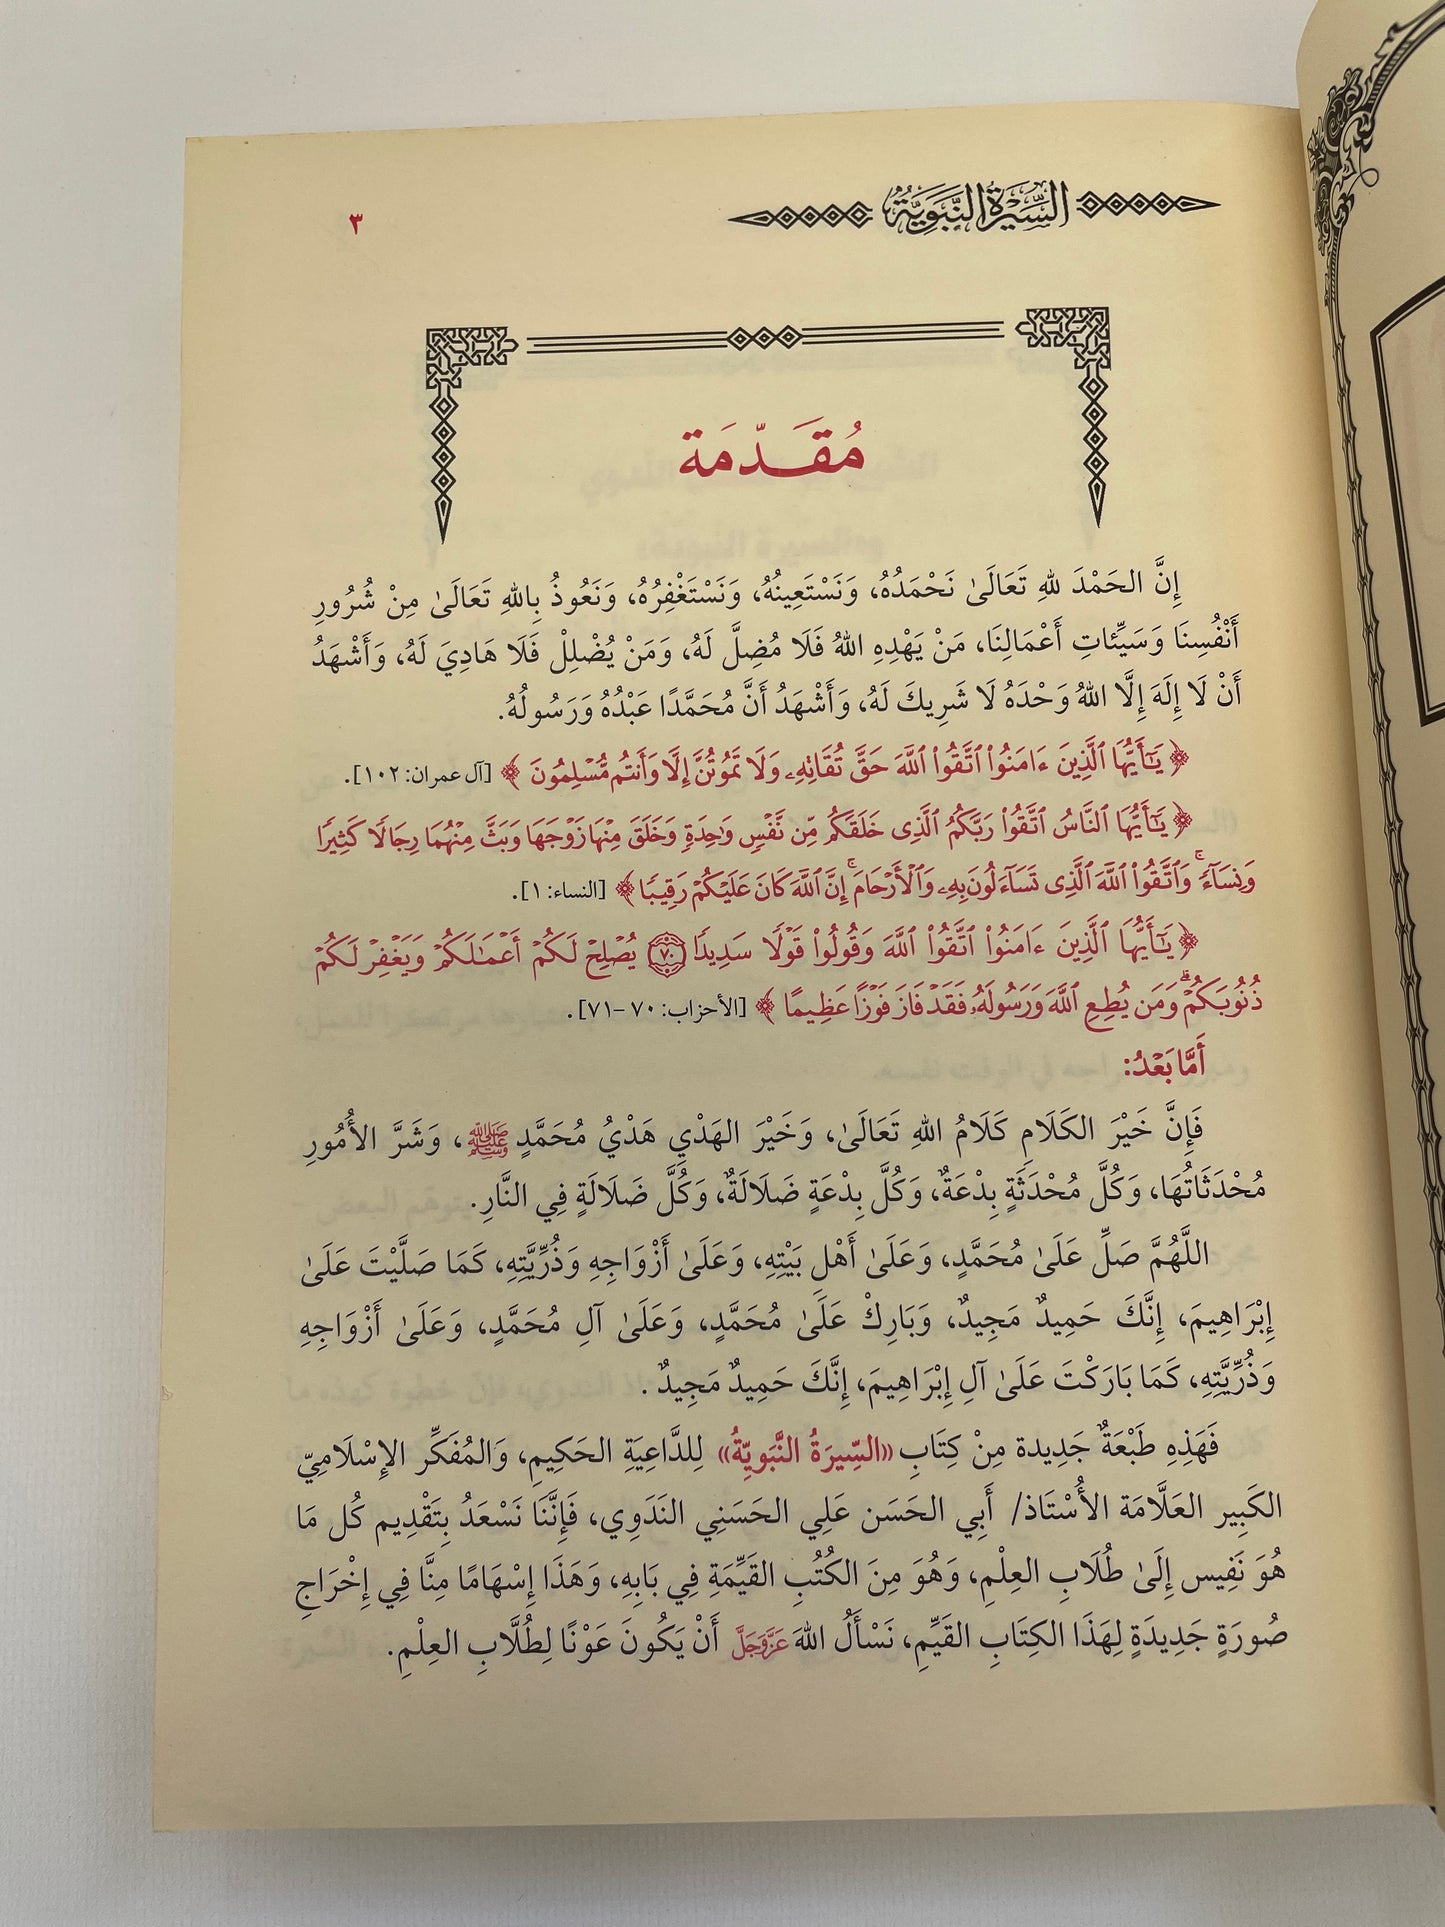 السِّيرَةُ النَّبَوِيَّةُ
٣
مُقَدّمَة
إِنَّ الحَمْدَ للهِ تَعَالَىٰ نَحْمَدُهُ، وَنَسْتَعِينُهُ، وَنَسْتَغْفِرُهُ، وَنَعُوذُ بِاللهِ تَعَالَىٰ مِنْ شُرُورِ
أَنْفُسِنَا وَسَيِّئاتِ أَعْمَالِنَا، مَنْ يَهْدِهِ اللهُ فَلَا مُضِلَّ لَهُ، وَمَنْ يُضْلِلْ فَلَا هَادِيَ لَهُ، وَأَشْهَدُ
أَنْ لَا إِلَهَ إِلَّا اللهُ وَحْدَهُ لَا شَرِيكَ لَهُ، وَأَشْهَدُ أَنَّ مُحَمَّدًا عَبْدُهُ وَرَسُولُهُ.
﴿ يَٰٓأَيُّهَا ٱلَّذِينَ ءَامَنُوا۟ ٱتَّقُوا۟ ٱللَّهَ حَقَّ تُقَاتِهِۦ وَلَا تَمُوتُنَّ إِلَّا وَأَنتُم مُّسْلِمُونَ ﴾ [آل عمران: ١٠٢].
﴿ يَٰٓأَيُّهَا ٱلنَّاسُ ٱتَّقُوا۟ رَبَّكُمُ ٱلَّذِى خَلَقَكُم مِّن نَّفْسٍ وَٰحِدَةٍ وَخَلَقَ مِنْهَا زَوْجَهَا وَبَثَّ مِنْهُمَا رِجَالًا كَثِيرًا
وَنِسَآءً ۚ وَٱتَّقُوا۟ ٱللَّهَ ٱلَّذِى تَسَآءَلُونَ بِهِۦ وَٱلْأَرْحَامَ ۚ إِنَّ ٱللَّهَ كَانَ عَلَيْكُمْ رَقِيبًا ﴾ [النساء: ١].
﴿ يَٰٓأَيُّهَا ٱلَّذِينَ ءَامَنُوا۟ ٱتَّقُوا۟ ٱللَّهَ وَقُولُوا۟ قَوْلًا سَدِيدًا ٧٠ يُصْلِحْ لَكُمْ أَعْمَٰلَكُمْ وَيَغْفِرْ لَكُمْ
ذُنُوبَكُمْ ۗ وَمَن يُطِعِ ٱللَّهَ وَرَسُولَهُۥ فَقَدْ فَازَ فَوْزًا عَظِيمًا ﴾ [الأحزاب: ٧٠-٧١].
أَمَّا بَعْدُ:
فَإِنَّ خَيْرَ الكَلَامِ كَلَامُ اللهِ تَعَالَىٰ، وَخَيْرَ الهَدْيِ هَدْيُ مُحَمَّدٍ ﷺ، وَشَرَّ الأُمُورِ
مُحْدَثَاتُهَا، وَكُلَّ مُحْدَثَةٍ بِدْعَةٌ، وَكُلَّ بِدْعَةٍ ضَلَالَةٌ، وَكُلَّ ضَلَالَةٍ فِي النَّارِ.
اللَّهُمَّ صَلِّ عَلَىٰ مُحَمَّدٍ، وَعَلَىٰ أَهْلِ بَيْتِهِ، وَعَلَىٰ أَزْوَاجِهِ وَذُرِّيَّتِهِ، كَمَا صَلَّيْتَ عَلَىٰ
إِبْرَاهِيمَ، إِنَّكَ حَمِيدٌ مَجِيدٌ، وَبَارِكْ عَلَىٰ مُحَمَّدٍ، وَعَلَىٰ آلِ مُحَمَّدٍ، وَعَلَىٰ أَزْوَاجِهِ
وَذُرِّيَّتِهِ، كَمَا بَارَكْتَ عَلَىٰ آلِ إِبْرَاهِيمَ، إِنَّكَ حَمِيدٌ مَجِيدٌ .
فَهَذِهِ طَبْعَةٌ جَدِيدة مِنْ كِتَابِ «السِّيرَةُ النَّبَوِيّةُ» لِلدَّاعِيَةِ الحَكِيمِ، وَالمُفَكِّر الإِسْلَامِيّ
الكَبِير العَلَّامَة الأُسْتَاذ/ أَبِي الحَسَن عَلِي الحَسَنِي النَدَوِي، فَإِنَّنَا نَسْعَدُ بِتَقْدِيم كُل مَا
هُوَ نَفِيس إِلَىٰ طُلَابِ العِلْمِ، وَهُوَ مِنَ الكُتُبِ القَيِّمَةِ فِي بَابِهِ، وَهَذَا إِسْهَامًا مِنَّا فِي إِخْرَاجِ
صُورَةٍ جَدِيدَةٍ لِهَذَا الكِتَابِ القَيِّمِ، نَسْأَلُ اللهَ عَزَّوَجَلَّ أَنْ يَكُونَ عَوْنًا لِطُلَّابِ العِلْمِ.